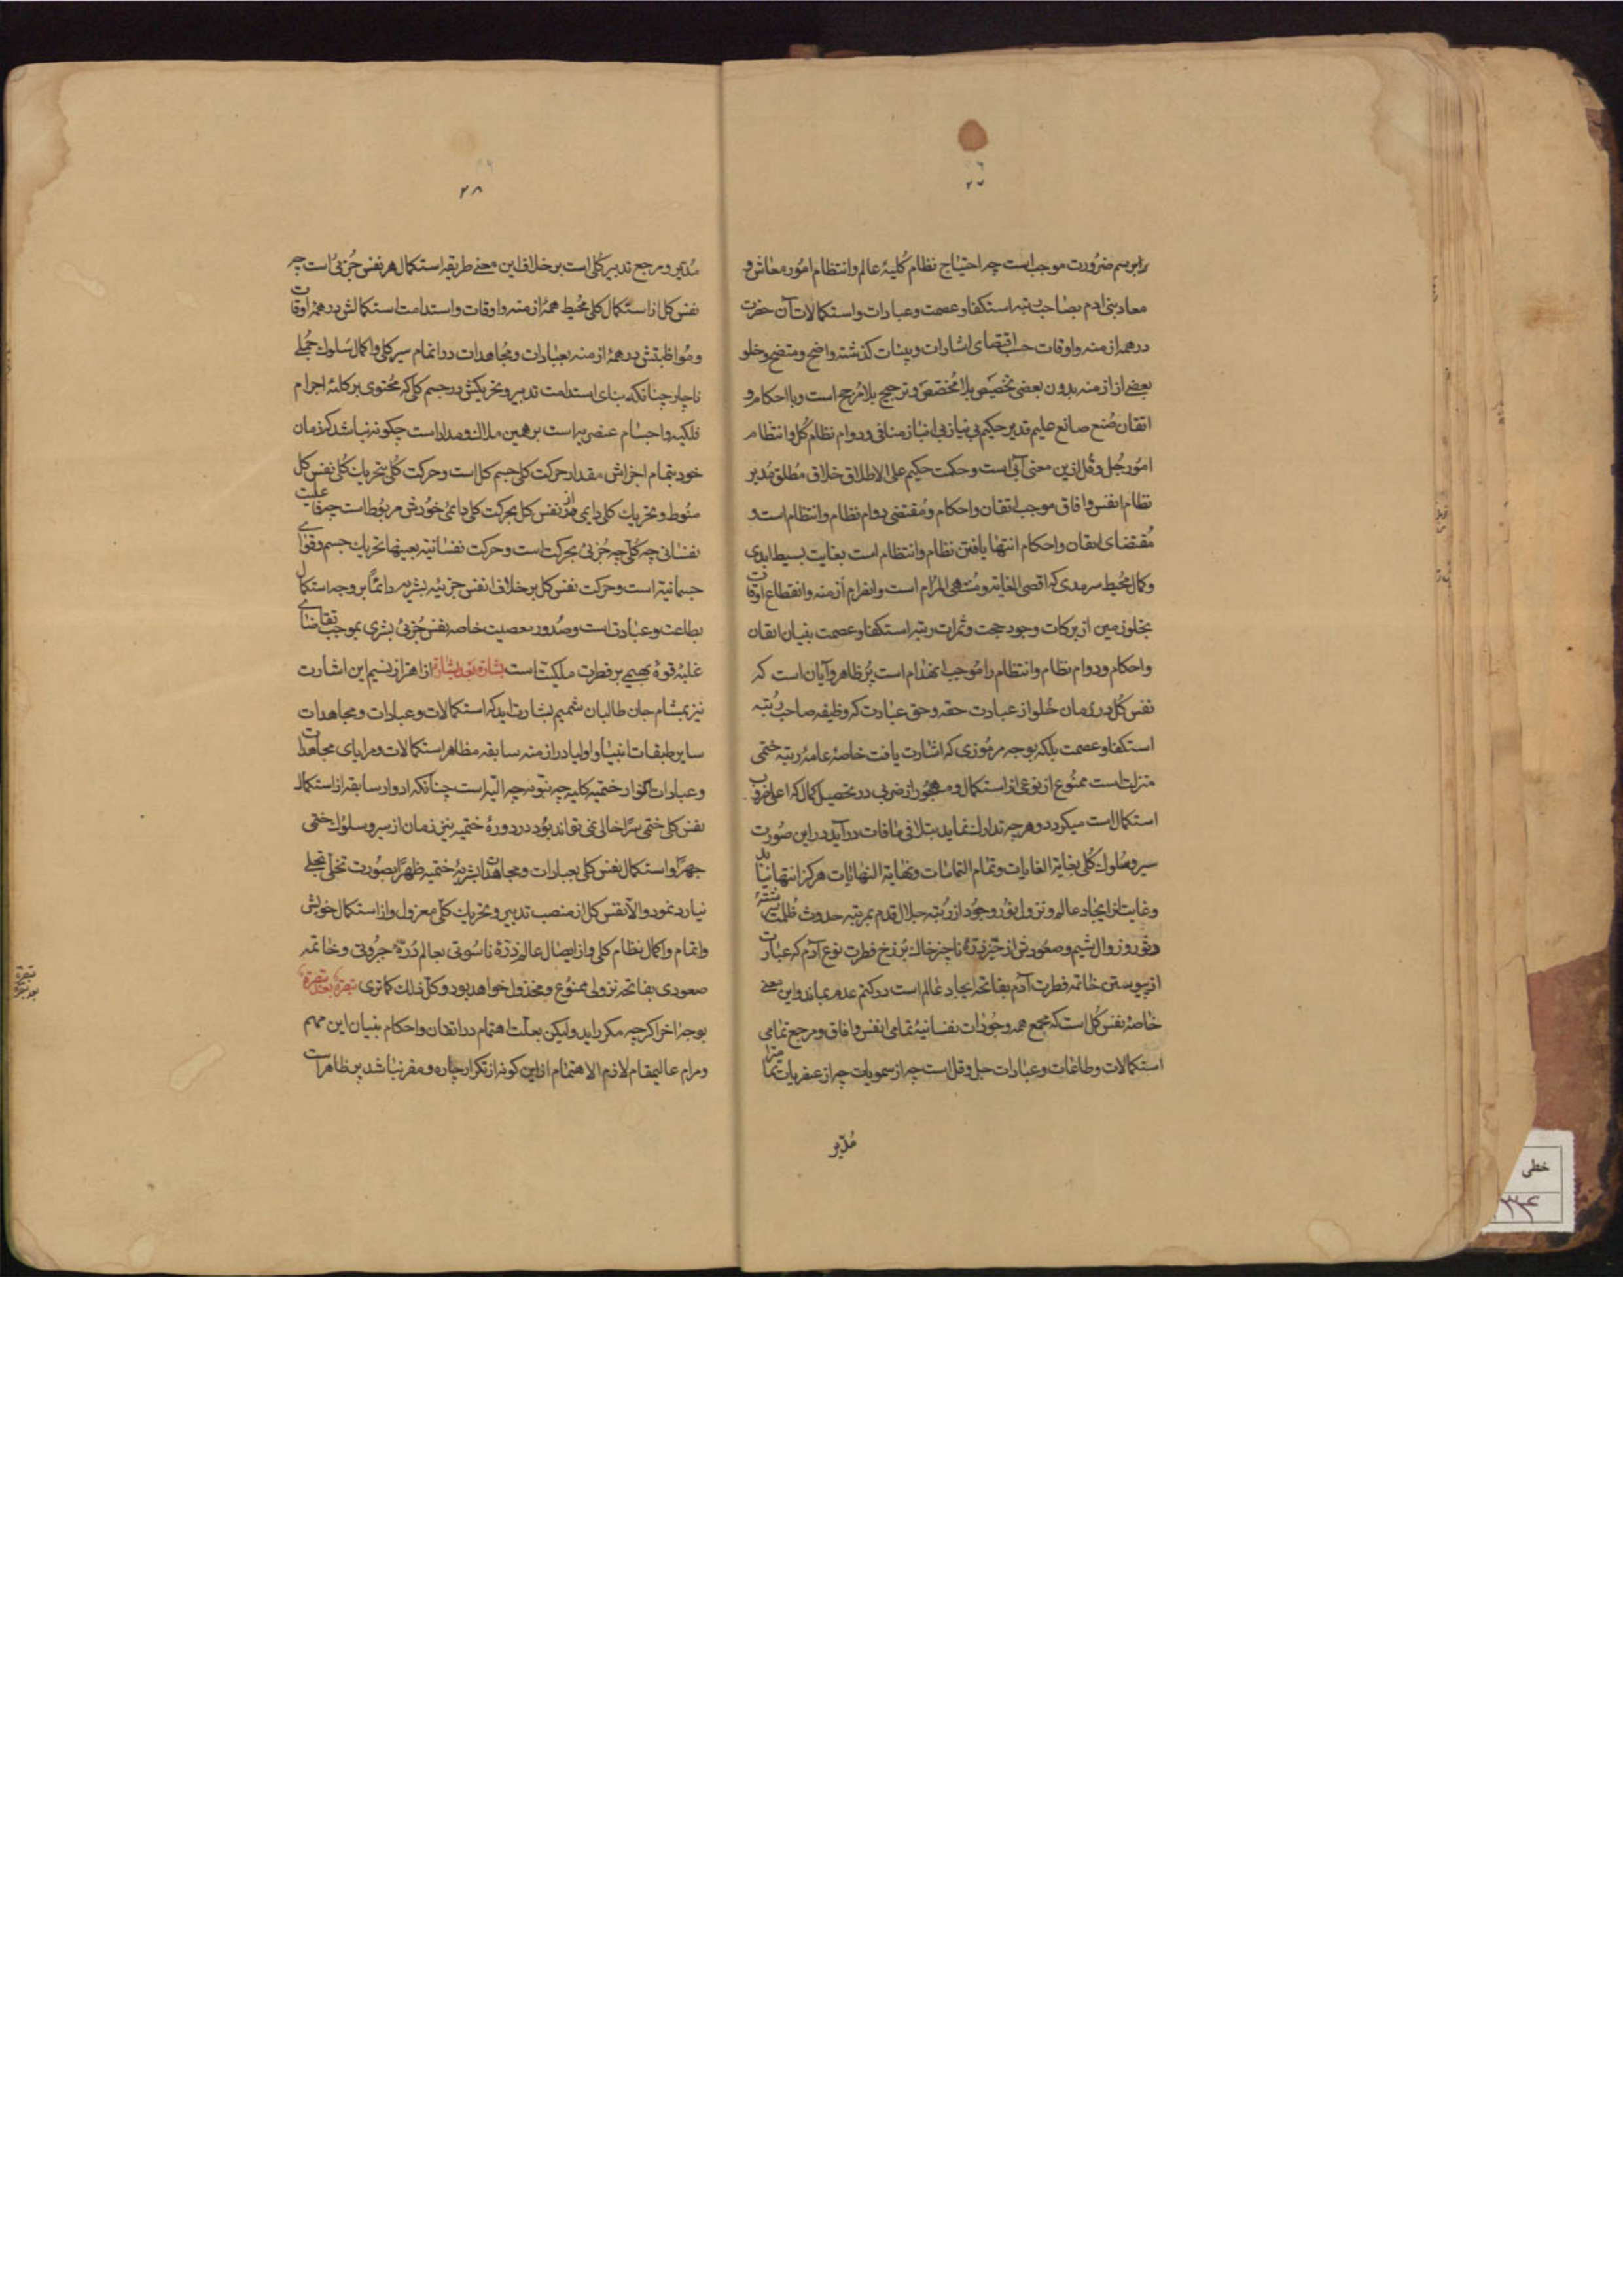 ۲۷
را برسم ضرورت موجب است چه احتیاج نظام کلیهٔ عالم و انتظام امور معاش و
معاد بنی ادم بصاحب رتبه استکفا و عصمت و عبادات و استکمالات آن حضرت
در همه ازمنه و اوقات حسب اقتضای اشارات و بینات گذشته واضح و متضح و خلو
بعضی از ازمنه بدون بعضی تخصیص بلا مخصص و ترجیح بلا مرجح است و با احکام و
اتقان صنع صانع علیم قدیر حکیم بی نیاز بی انباز منافی و دوام نظام کل و انتظام
امور جل و قل ازین معنی آبی است و حکمت حکیم علی الاطلاق خلاق مطلق مدبر
نظام انفس و افاق موجب اتقان و احکام و مقتضی دوام نظام و انتظام است و
مقتضای اتقان و احکام انتها یافتن نظام و انتظام است بغایت بسیط ابدی
و کمال محیط سرمدی که اقصی الغایه و منتهی المرام است و انفرام ازمنه و انقطاع اوقات
بخلو زمین از برکات وجود حجت و ثمرات رتبه استکفا و عصمت بنیان اتقان
و احکام و دوام نظام و انتظام را موجب انهدام است پر ظاهر و آیان است که
نفس کل در زمان خلو از عبادت حقه و حق عبادت که وظیفه صاحب رتبه
استکفا و عصمت بلکه بوجه مرموزی که اشارت یافت خاصهٔ عامهٔ رتبه ختمی
منزلت است ممنوع از نوعی از استکمال و مهجور از ضربی در تحصیل کمال که اعلی ضروب
استکمال است میکردد و هر چه تدارک نماید بتلافی مافات در آید در این صورت
سیر و سلوک کلی بغایة الغایات و تمام التمامات و نهایة النهایات هرکز انتها نیابد
و غایت از ایجاد عالم و نزول نور وجود از رتبه جلال قدم بمرتبه حدوث ظلمت
دثور و زوال شیم و صعودش از حیز ذرهٔ ناچیز خاک برزخ فطرت نوع آدم که عبارت
از پیوستن خاتمه فطرت آدم بفاتحه ایجاد عالم است در کتم عدم بماند و این معنی
خاصهٔ نفس کل است که مجمع همه وجودات نفسانیهٔ تمامی انفس و افاق و مرجع تمامی
استکمالات و طاعات و عبادات جل و قل است چه از سمویات چه از عنصریات
مدبر
۲۸
مدبر و مرجع تدبیر کلی است بر خلاف این معنی طریقه استکمال هر نفس جزئی است چه
نفس کل از استکمال کلی محیط همهٔ ازمنه و اوقات و استدامت استکمالش در همهٔ اوقات
و مواظبتش در همهٔ ازمنه بعبادات و مجاهدات در اتمام سیر کلی و اکمال سلوک جملی
ناچار چنانکه بنای استدامت تدبیر و تحریکش در جسم کلی که محتوی بر کلیهٔ اجرام
فلکیه و اجسام عنصریه است بر همین ملاک و مدار است چکونه نباشد که زمان
خود بتمام اجزاش مقدار حرکت کلی جسم کل است و حرکت کلی بتحریک کلی نفس کل
منوط و تحریک کلی دایمی نفس کل بحرکت کلی دایمی خودش مربوط است چه فاعلیت
نفسانی چه کلی چه جزئی بحرکت است و حرکت نفسانیه بعینها تحریک جسم و قوای
جسمانیه است و حرکت نفس کل بر خلاف انفس جزئیه بشریه دائما بر وجه استکمال
بطاعت و عبادت است و صدور معصیت خاصه نفس جزئی بشری بموجب تقاضای
غلبهٔ قوهٔ بهیمی بر فطرت ملکیت است بشارة بعد بشارة از اهتزاز نسیم این اشارت
نیز بمشام جان طالبان شمیم بشارت اید که استکمالات و عبادات و مجاهدات
سایر طبقات انبیا و اولیا در ازمنه سابقه مظاهر استکمالات و مرایای مجاهدات
و عبادات انوار ختمیه کلیه چه نبویه چه الیه است چنانکه ادوار سابقه از استکمال
نفس کلی ختمی سرا خالی نمی تواند بود در دورهٔ ختمیه نیز زمان از سیر و سلوک ختمی
جهرا و استکمال نفس کلی بعبادات و مجاهدات بشریهٔ ختمیه ظهرا بصورت تخلی تجلی
نیارد نمود و الا نفس کل از منصب تدبیر و تحریک کلی معزول و از استکمال خویش
و اتمام و اکمال نظام کلی و از ایصال عالم ذرهٔ ناسوتی بعالم درهٔ جبروتی و خاتمه
صعودی بفاتحه نزولی ممنوع و مخذول خواهد بود و کل ذلک کما تری تبصرة بعد تبصرة
بوجه اخر اکرچه مکرر اید ولیکن بعلت اهتمام در اتقان و احکام بنیان این مهم
و مرام عالیمقام لازم الاهتمام از این کونه از تکرار چاره و مفر نباشد پر ظاهر است
تبصرة
بعد تبصرة
خطی